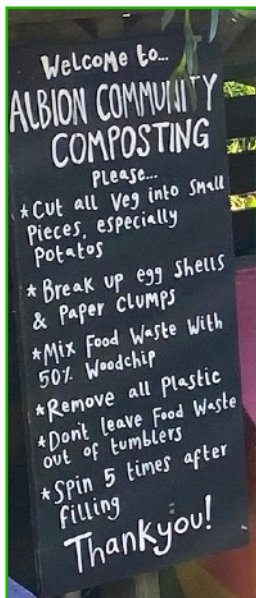 Welcome to...
ALBION COMMUNITY
COMPOSTING
Please...
*Cut all Veg into Small
Pieces, especially
Potatos
*Break up egg Shells
& Paper Clumps
*Mix Food Waste With
50% Woodchip
*Remove all Plastic
*Dont leave Food Waste
out of tumblers
*Spin 5 times after
filling
Thankyou!